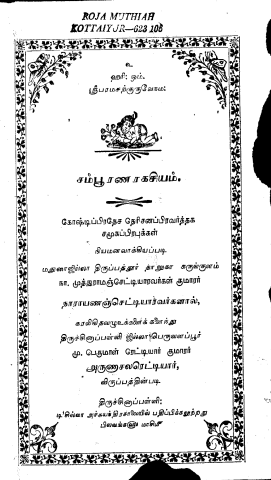 ROJA MUTHIAH
KOTTAIYUR—623 106
உ
ஹரி: ஓம்.
ஸ்ரீபரமசற்குருவேநம:
சம்பூரணரகசியம்.
கோஷ்டிப்பிரதேச தெரிசனப்பிரவர்த்தக
சமூகப்பிரபுக்கள்
நியமனவாக்கியப்படி
மதுரைஜில்லா திருப்பத்தூர் தாலுகா கருங்குளம்
நா. முத்துராமஞ்செட்டியாரவர்கள் குமாரர்
நாராயணஞ்செட்டியாரவர்களால்,
திருச்சினாப்பள்ளி ஜில்லா பெருவளப்பூர்
மு. பெருமாள் ரெட்டியார் குமாரர்
அருணாசலரெட்டியார்,
விருப்பத்தின்படி
திருச்சினாப்பள்ளி:
பதிப்பிக்கலுற்றது